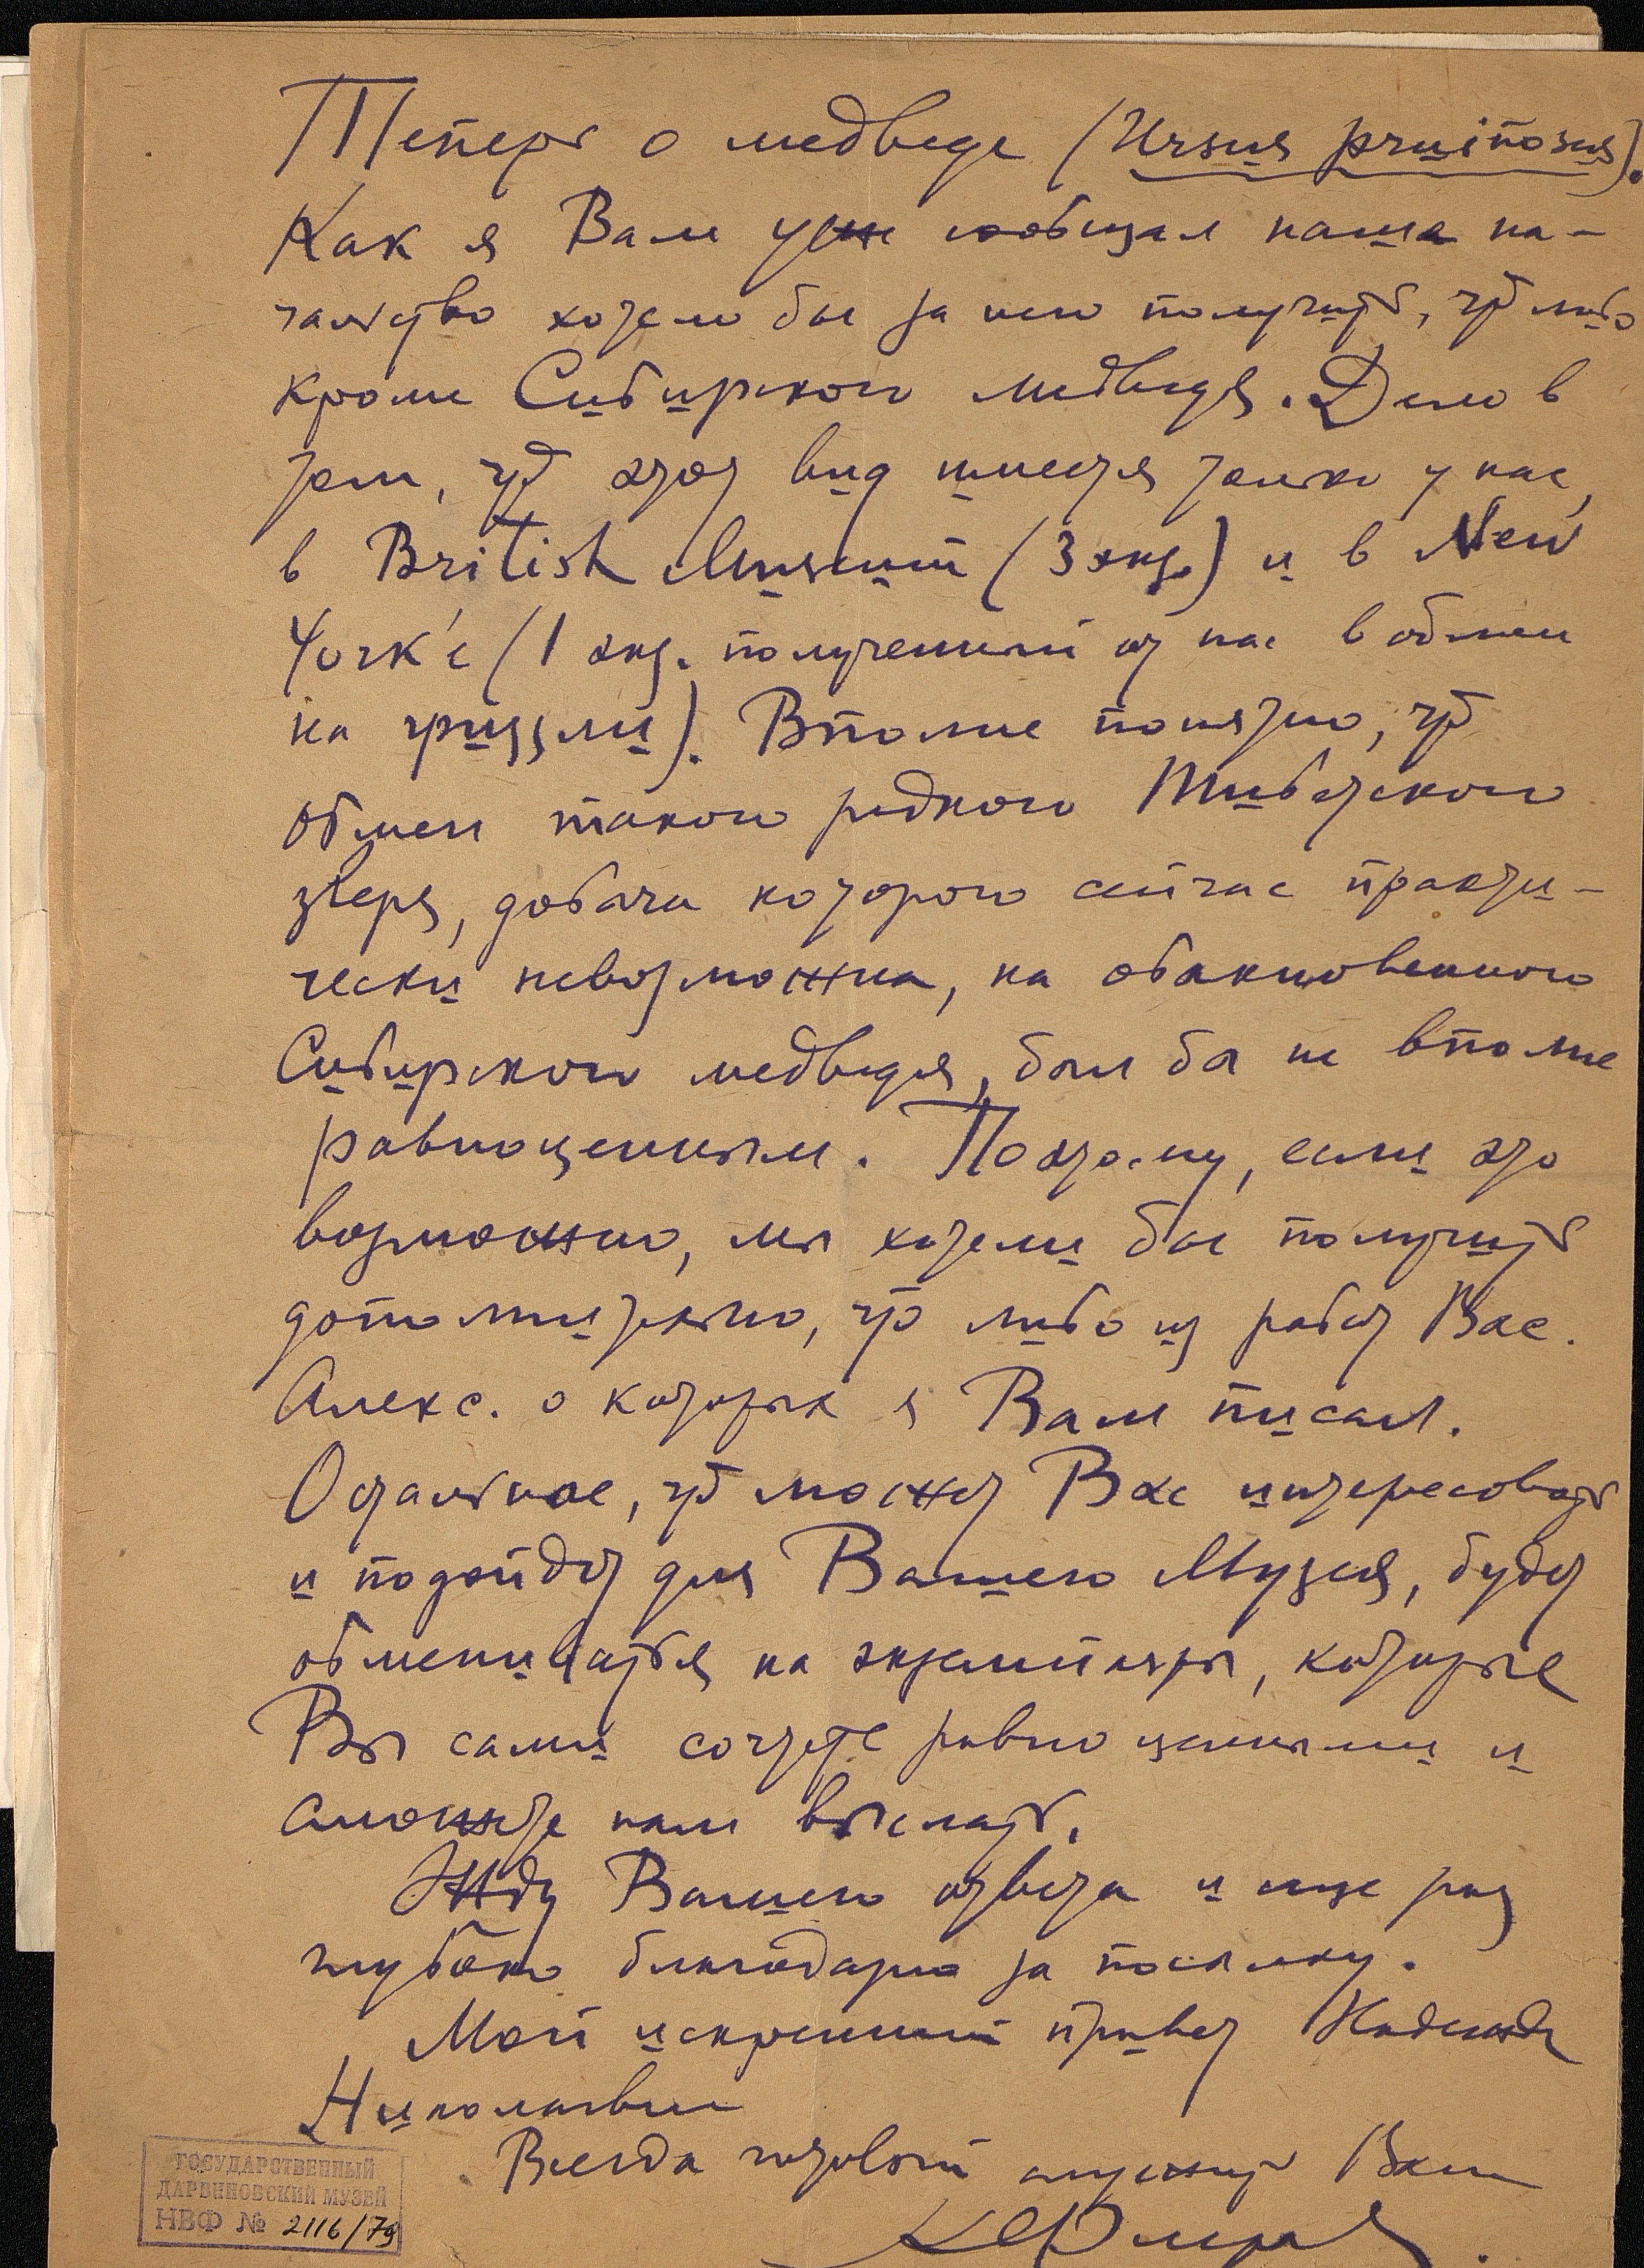 Теперь о медведе (Ursus pruinosus).
Как я Вам уже сообщал наше на-
чальство хотело бы за него получить, что либо
кроме Сибирского медведя. Дело в
том, что этот вид имеется только у нас,
в British Museum (3 экз.) и в New
York'е (1 экз. полученный от нас в обмен
на гриззли). Вполне понятно, что
обмен такого редкого Тибетского
зверя, добыча которого сейчас практи-
чески невозможна, на обыкновенного
Сибирского медведя, был бы не вполне
равноценным. Поэтому, если это
возможно, мы хотели бы получить
дополнительно, что либо из работ Вас.
Алекс. о которых я Вам писал.
Остальное, что может Вас интересовать
и подойдет для Вашего Музея, будет
обмениваться на экземпляры, которые
Вы сами сочтете равноценными и
сможете нам выслать.
Жду Вашего ответа и еще раз
глубоко благодарю за посылку.
Мой искренний привет Надежде
Николаевне
Всегда готовый служить Вам
К Флеров.
ГОСУДАРСТВЕННЫЙ
ДАРВИНОВСКИЙ МУЗЕЙ
НВФ № 2116/79